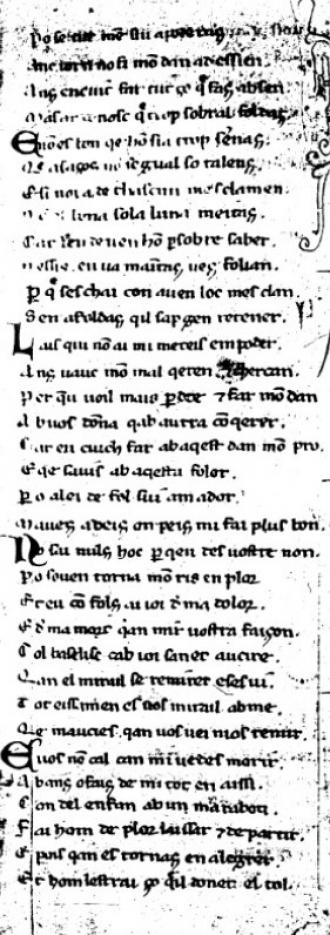 Po se tut mō siu apercring
Anc torn no si mō dan adessien.
Ang enemic fat tut ço q̄ faz absen
Mas ar conosc q̄ trop sobral foldag.
E nō es bon qe hō sia trop senaz.
Qe asazos no segual so talens.
E si noi a de chascun mesclamen.
Nō es bona sola luna meitaz.
Car ben deuen hō p sobre saber.
nessis. en ua maintas uez folian.
P q̄ ses chai con auen loc mesclan
Sen ab foldaz qil sap gen retener.
Las qiu nō ai mi meteis em poder.
Anz uauc mō mal qeren ⁊ cercan.
Per qu uoil mais pdre ⁊ far mō dan
Ab uos dōna qab autra cōqerer.
Car en cuich far ab aqest dan mō pro.
E qe sauis ab aqesta folor.
P o a lei de fol siu amador.
M aues adeis on peis mi fai plus bon.
No siu nuls hoc p qen des uostre non.
Po souen torna mō ris en plor
Et eu cō fols ai ioi d ma dolor.
E d ma mort qan mir uostra faiçon.
Col basilisc cab ioi sanet aucire.
Qan el mirail se remiret e ses ui.
Tot eissimen es uos mirail ab me.
Qe mauciez. qan uos uei nios remir.
E uos nō cal can mi uedes morir
Abanz o faiz de mi tot en aissi.
Con del enfan ab un maraboti.
Fai hom de plor laissar ⁊ de partir.
E pois qan es tornaz en alegrer.
Et hom lestrai ço qil donet el tol.